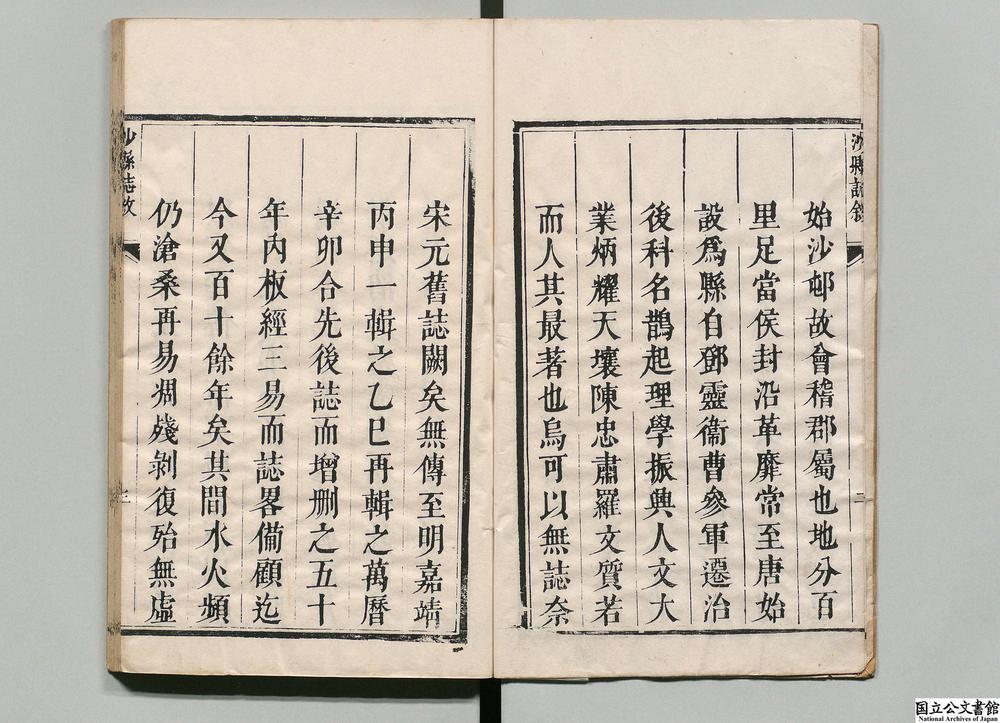 沙縣誌錄
二
始沙邨故會稽郡屬也地分百
里足當侯封沿革靡常至唐始
設爲縣自鄧靈衞曹參軍遷治
後科名鵲起理學振興人文大
業炳耀天壤陳忠肅羅文質若
而人其最著也烏可以無誌奈
宋元舊誌闕矣無傳至明嘉靖
丙申一輯之乙巳再輯之萬曆
辛卯合先後誌而增刪之五十
年內板經三易而誌畧備顧迄
今又百十餘年矣其間水火頻
仍滄桑再易凋殘剝復殆無虛
沙縣志
三
国立公文書館
National Archives of Japan